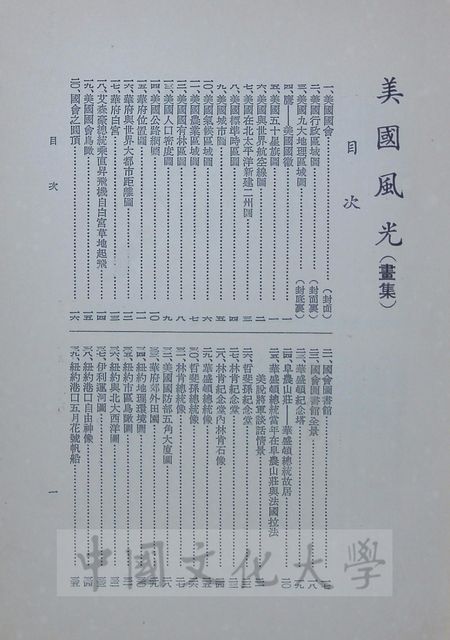 美國風光(畫集)
目次
一、美國國會(封面)
二、美國行政區域圖(封面裏)
三、美國九大地理區域圖(封底裏)
四、鷹——美國國徽一
五、美國五十星旗圖一
六、美國與世界航空線圖二
七、美國在北太平洋新建二州圖三
八、美國標準時區圖四
九、美國城市圖五
一〇、美國氣候區域圖六
一一、美國農業區域圖七
一二、美國國有林區圖八
一三、美國人口密度圖九
一四、美國公路網圖一〇
一五、華府位置圖一一
一六、華府與世界大都市距離圖一二
一七、華府白宮一三
一八、艾森豪總統乘直昇飛機自白宮草地起飛一四
一九、美國國會鳥瞰一五
二〇、國會之圓頂一六
二一、國會圖書館一七
二二、國會圖書館全景一八
二三、華盛頓紀念塔一九
二四、阜農山莊——華盛頓總統故居二〇
二五、華盛頓總統當年在阜農山莊與法國拉法
美脫將軍談話情景二一
二六、哲斐孫紀念堂二二
二七、林肯紀念堂二三
二八、林肯紀念堂內林肯石像二四
二九、華盛頓總統像二五
三〇、哲斐孫總統像二六
三一、林肯總統像二七
三二、美國國防部五角大廈圖二八
三三、華府郊外田園二九
三四、紐約地理環境圖三〇
三五、紐約市區鳥瞰圖三一
三六、紐約與北大西洋圖三二
三七、伊利運河圖三三
三八、紐約港口自由神像三四
三九、紐約港口五月花號帆船三五
目次
一
中國文化大學